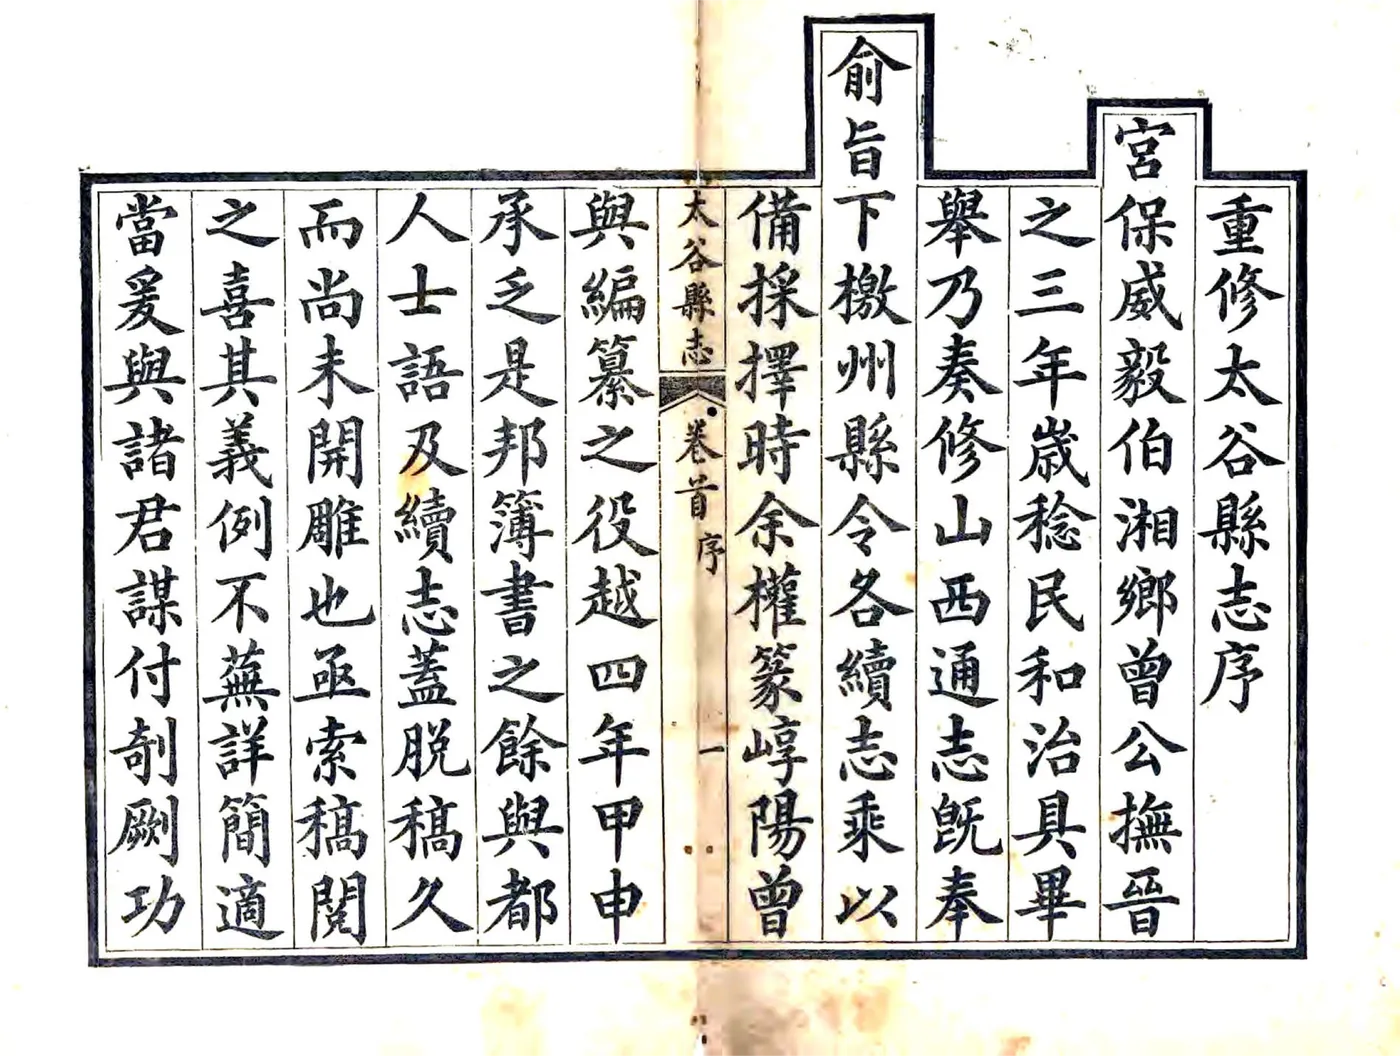 重修太谷縣志序
宮保威毅伯湘鄉曾公撫晉
之三年歲稔民和治具畢
舉乃奏修山西通志旣奉
俞旨下檄州縣令各續志乘以
備採擇時余權篆崞陽曾
太谷縣志 卷首 序 一
與編纂之役越四年甲申
承乏是邦簿書之餘與都
人士語及續志蓋脫稿久
而尚未開雕也亟索稿閱
之喜其義例不蕪詳簡適
當爰與諸君謀付剞劂功